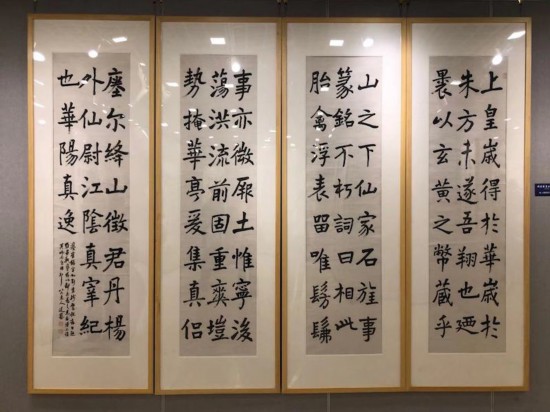 上皇歲得於華歲於
朱方未遂吾翔也廼
裹以玄黃之幣蔵乎
山之下仙家石旌事
篆銘不朽詞曰相此
胎禽浮表留唯髣髴
事亦微厥土惟寧後
蕩洪流前固重爽塏
勢掩華亭爰集真侶
瘞尔絳山徵君丹楊
外仙尉江陰真宰紀
也華陽真逸